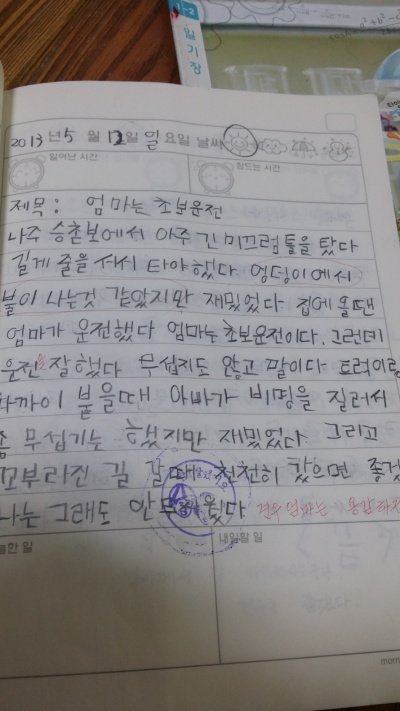 일기장
2013년 5월 12일 일요일 날씨
일어난 시간
잠드는 시간
제목: 엄마는 초보운전
나주 승촌보에서 아주 긴 미끄럼틀을 탔다
길게 줄을 서서 타야했다 엉덩이에서
불이 나는것 같았지만 재밌었다 집에 올땐
엄마가 운전했다 엄마는 초보운전이다. 그런데
운전을 잘했다 무섭지도 않고 말이다 트럭이랑
까이 붙을때 아빠가 비명을 질러서
좀 무섭기는 했지만 재밌었다 그리고
꼬부라진 길 갈때 천천히 갔으면 좋겠
나는 그래도 안무서웠다 엄마는 용감하
늘한 일
내일할 일